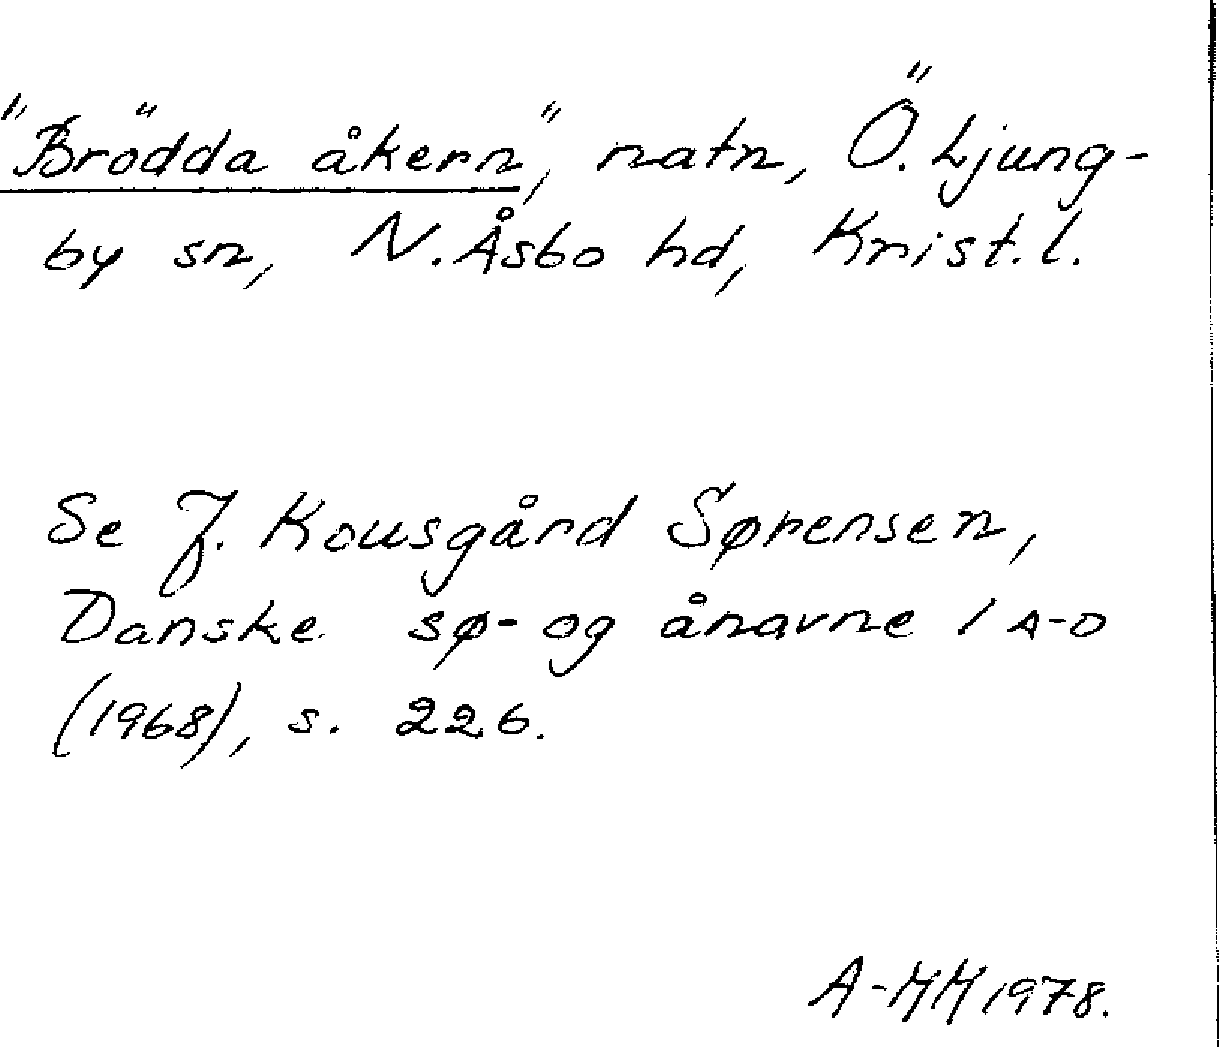 "Brödda åkern", natn, Ö. Ljung-
by sn, N. Åsbo hd, Krist. l.
Se J. Kousgård Sørensen,
Danske sø- og ånavne 1 A-D
(1968), s. 226.
A-MM 1978.